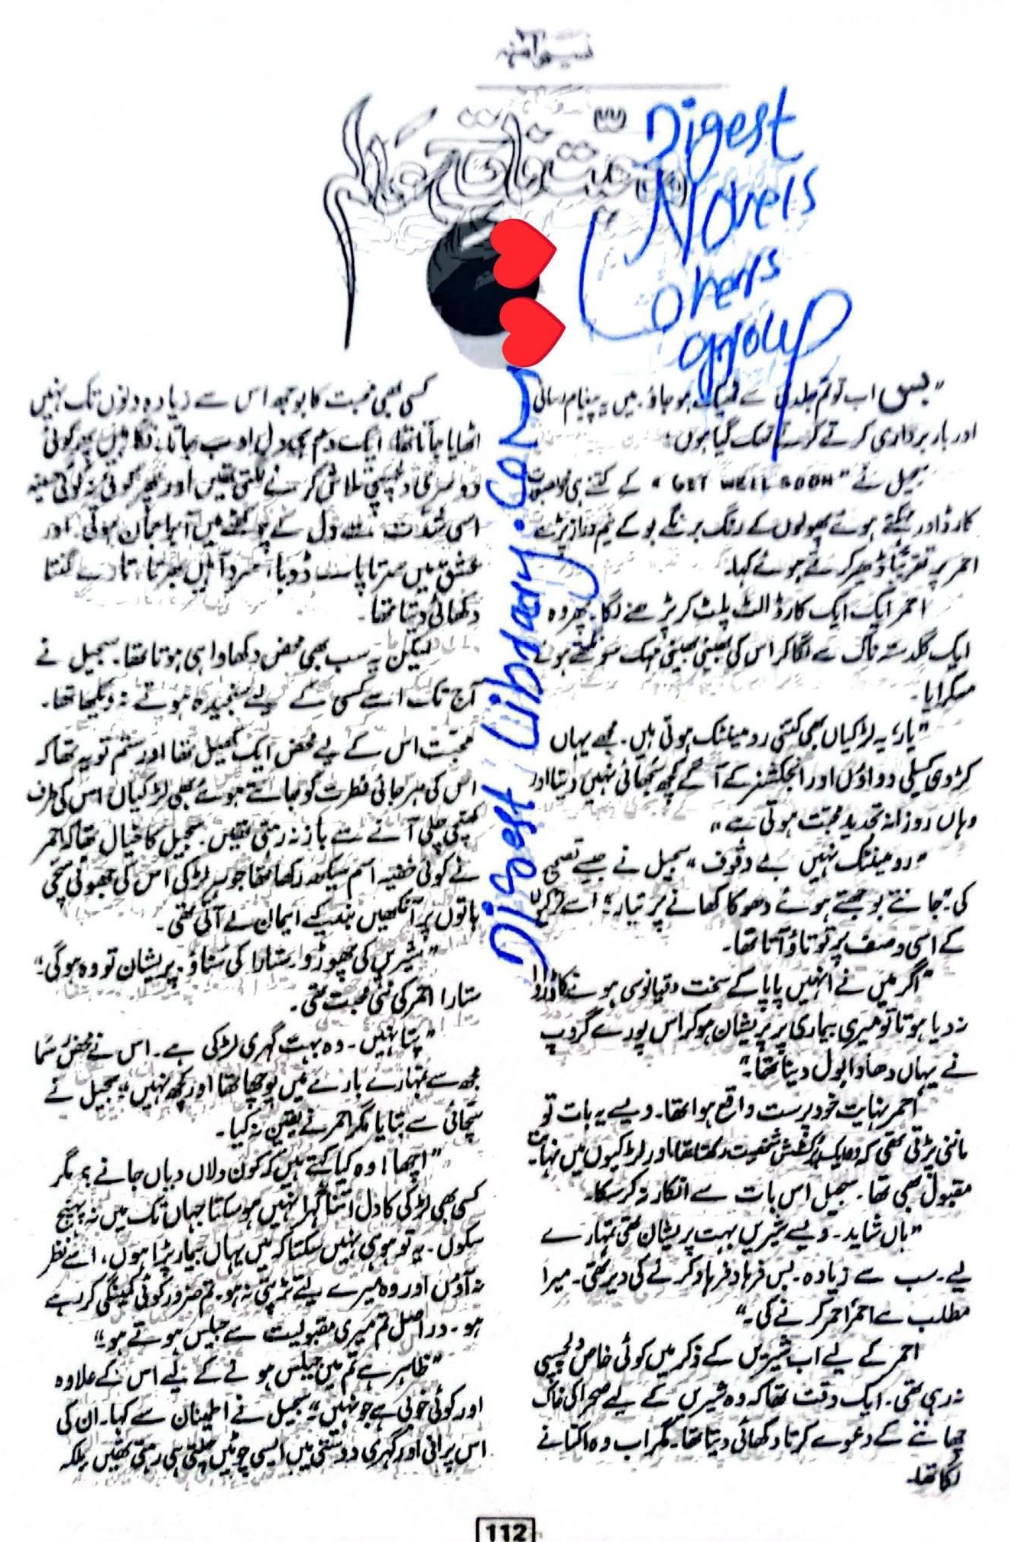 نسیم آمنہ
محبت فاتح عالم
Digest
Novels
Lovers
group
Digest Library.com
"بس اب تو تم جلدی سے ٹھیک ہو جاؤ۔ میں یہ پیغام رسانی
اور بار برداری کرتے کرتے تھک گیا ہوں۔"
سجیل نے "GET WELL SOON" کے کتنے ہی خوبصورت
کارڈ اور مہکتے ہوئے پھولوں کے رنگ برنگے بوکے نیم دراز پڑے
احمر پر تقریباً ڈھیر کرتے ہوئے کہا۔
احمر ایک ایک کارڈ الٹ پلٹ کر پڑھنے لگا پھر وہ
ایک گلدستہ ناک سے لگا کر اس کی بھینی بھینی مہک سونگھتے ہوئے
مسکرایا۔
"یار! یہ لڑکیاں بھی کتنی رومینٹک ہوتی ہیں۔ مجھے یہاں
کڑوی کسیلی دواؤں اور انجکشنز کے آگے کچھ سجھائی نہیں دیتا اور
وہاں روزانہ تجدید محبت ہوتی ہے"
"رومینٹک نہیں بے وقوف" سجیل نے جیسے تصحیح
کی "جانتے بوجھتے ہوئے دھوکا کھانے پر تیار" اسے لڑکیوں
کے اسی وصف پر تو تاؤ آتا تھا۔
"اگر میں نے انہیں پاپا کے سخت دقیانوسی ہونے کا ڈراوا
نہ دیا ہوتا تو میری بیماری پر پریشان ہو کر اس پورے گروپ
نے یہاں دھاوا بول دینا تھا۔"
احمر نہایت خود پرست واقع ہوا تھا۔ ویسے یہ بات تو
ماننی پڑتی تھی کہ وہ ایک پرکشش شخصیت رکھتا تھا اور لڑکیوں میں نہایت
مقبول بھی تھا۔ سجیل اس بات سے انکار نہ کر سکا۔
"ہاں شاید۔ ویسے شیریں بہت پریشان تھی تمہارے
لیے۔ سب سے زیادہ۔ بس فرہاد فرہاد کرنے کی دیر تھی۔ میرا
مطلب ہے احمر احمر کرنے کی۔"
احمر کے لیے اب شیریں کے ذکر میں کوئی خاص دلچسپی
نہ رہی تھی۔ ایک وقت تھا کہ وہ شیریں کے لیے صحرا کی خاک
چھاننے کے دعوے کرتا دکھائی دیتا تھا۔ مگر اب وہ اکتانے
لگا تھا۔
کسی بھی محبت کا بوجھ اس سے زیادہ دنوں تک نہیں
اٹھایا جاتا تھا، ایک دم ہی دل اوب جاتا، نگاہیں پھر کوئی
دوسری دلچسپی تلاش کرنے لگتی تھیں اور پھر کوئی نہ کوئی حسینہ
اسی شدت سے دل کے چوکھٹے میں آبراجمان ہوتی۔ اور
عشق میں سر تا پا ڈوبا، سرد آہیں بھرتا، تارے گنتا
دکھائی دیتا تھا۔
لیکن یہ سب بھی محض دکھاوا ہی ہوتا تھا۔ سجیل نے
آج تک اسے کسی کے لیے سنجیدہ ہوتے نہ دیکھا تھا۔
محبت اس کے لیے محض ایک کھیل تھا اور ستم تو یہ تھا کہ
اس کی ہرجائی فطرت کو جانتے ہوئے بھی لڑکیاں اس کی طرف
کھنچی چلی آنے سے باز نہ رہتی تھیں۔ سجیل کا خیال تھا کہ احمر
نے کوئی خفیہ اسم سیکھ رکھا تھا جو ہر لڑکی اس کی جھوٹی سچی
باتوں پر آنکھیں بند کیے ایمان لے آتی تھی۔
"شیریں کی چھوڑو، ستارا کی سناؤ۔ پریشان تو وہ ہو گی۔"
ستارا احمر کی نئی محبت تھی۔
"پتا نہیں۔ وہ بہت گہری لڑکی ہے۔ اس نے محض رسماً
مجھ سے تمہارے بارے میں پوچھا تھا اور کچھ نہیں" سجیل نے
سچائی سے بتایا مگر احمر نے یقین نہ کیا۔
"اچھا! وہ کیا کہتے ہیں کہ کون دلاں دیاں جانے ہو مگر
کسی بھی لڑکی کا دل اتنا گہرا نہیں ہو سکتا جہاں تک میں نہ پہنچ
سکوں۔ یہ تو ہو ہی نہیں سکتا کہ میں یہاں بیمار پڑا ہوں، اسے نظر
نہ آؤں اور وہ میرے لیے تڑپتی نہ ہو۔ تم ضرور کوئی کمینگی کر رہے
ہو۔ دراصل تم میری مقبولیت سے جیلس ہوتے ہو"
"ظاہر ہے تم میں جیلس ہونے کے لیے اس کے علاوہ
اور کوئی خوبی ہے جو نہیں" سجیل نے اطمینان سے کہا۔ ان کی
اس پرانی اور گہری دوستی میں ایسی چوٹیں چلتی ہی رہتی تھیں بلکہ
112